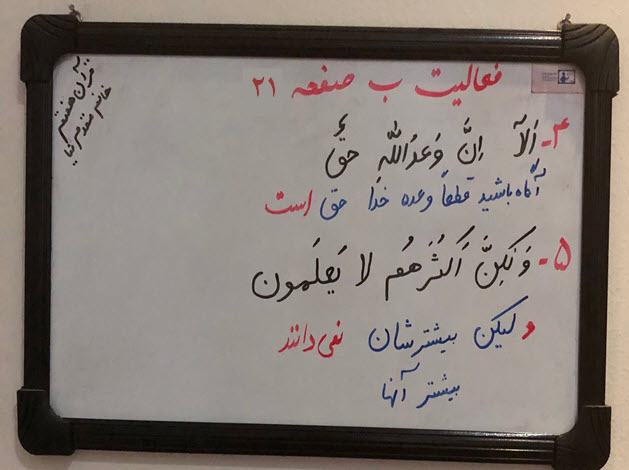 فعالیت ب صفحه ۲۱
قرآن هفتم
خانم
۴- اَلآ اِنَّ وَعدَ اللّٰهِ حَقٌّ
آگاه باشید قطعاً وعده خدا حق است
۵- وَ لٰکِنَّ اَکثَرَهُم لا یَعلَمون
ولیکن بیشترشان نمی دانند
بیشتر آنها